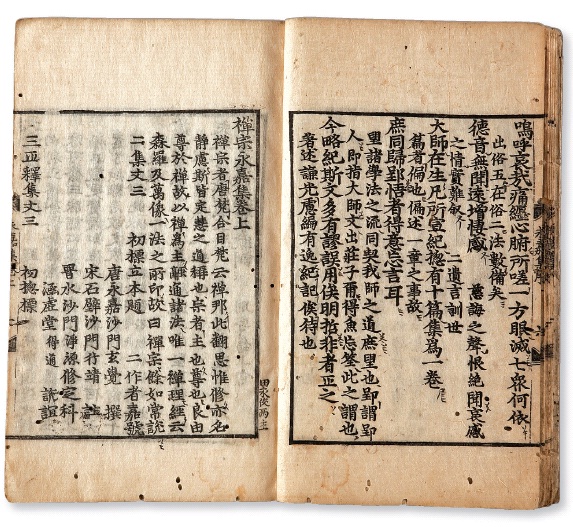 嗚呼哀哉痛纏心腑所嗟一方眼滅七衆何依
出俗五在俗二法數備矣
德音無聞遠增悽感 慈誨之聲恨絶聞哀感
之情實難叙 二遺言訓世
大師在生凡所宣紀揔有十篇集爲一卷
篇者徧也徧述一童之事故
庶同歸郢悟者得意忘言耳
望諸學法之流同契我師之道庶望也郢謂郢
人即指大師文出莊子爾得魚忘筌此之謂也
今略紀斯文多有謬誤用俟明哲非者正之
著述謙光慮編有逸紀記俟待也
禪宗永嘉集卷上
禪宗者唐梵合目梵云禪那此翻思惟修亦名
靜慮斯皆定慧之通稱也宗者主也尊也良由
尊於禪故以禪爲主離通諸法唯一禪理經云
森羅及萬像一法之所印故曰禪宗餘如常說
二集文三 初標立本題 二作者嘉號
唐永嘉沙門玄覺 撰
宋石壁沙門行靖 註
晋水沙門淨源修定科
涵虛堂得通 說誼
三正釋集文三 初揔標